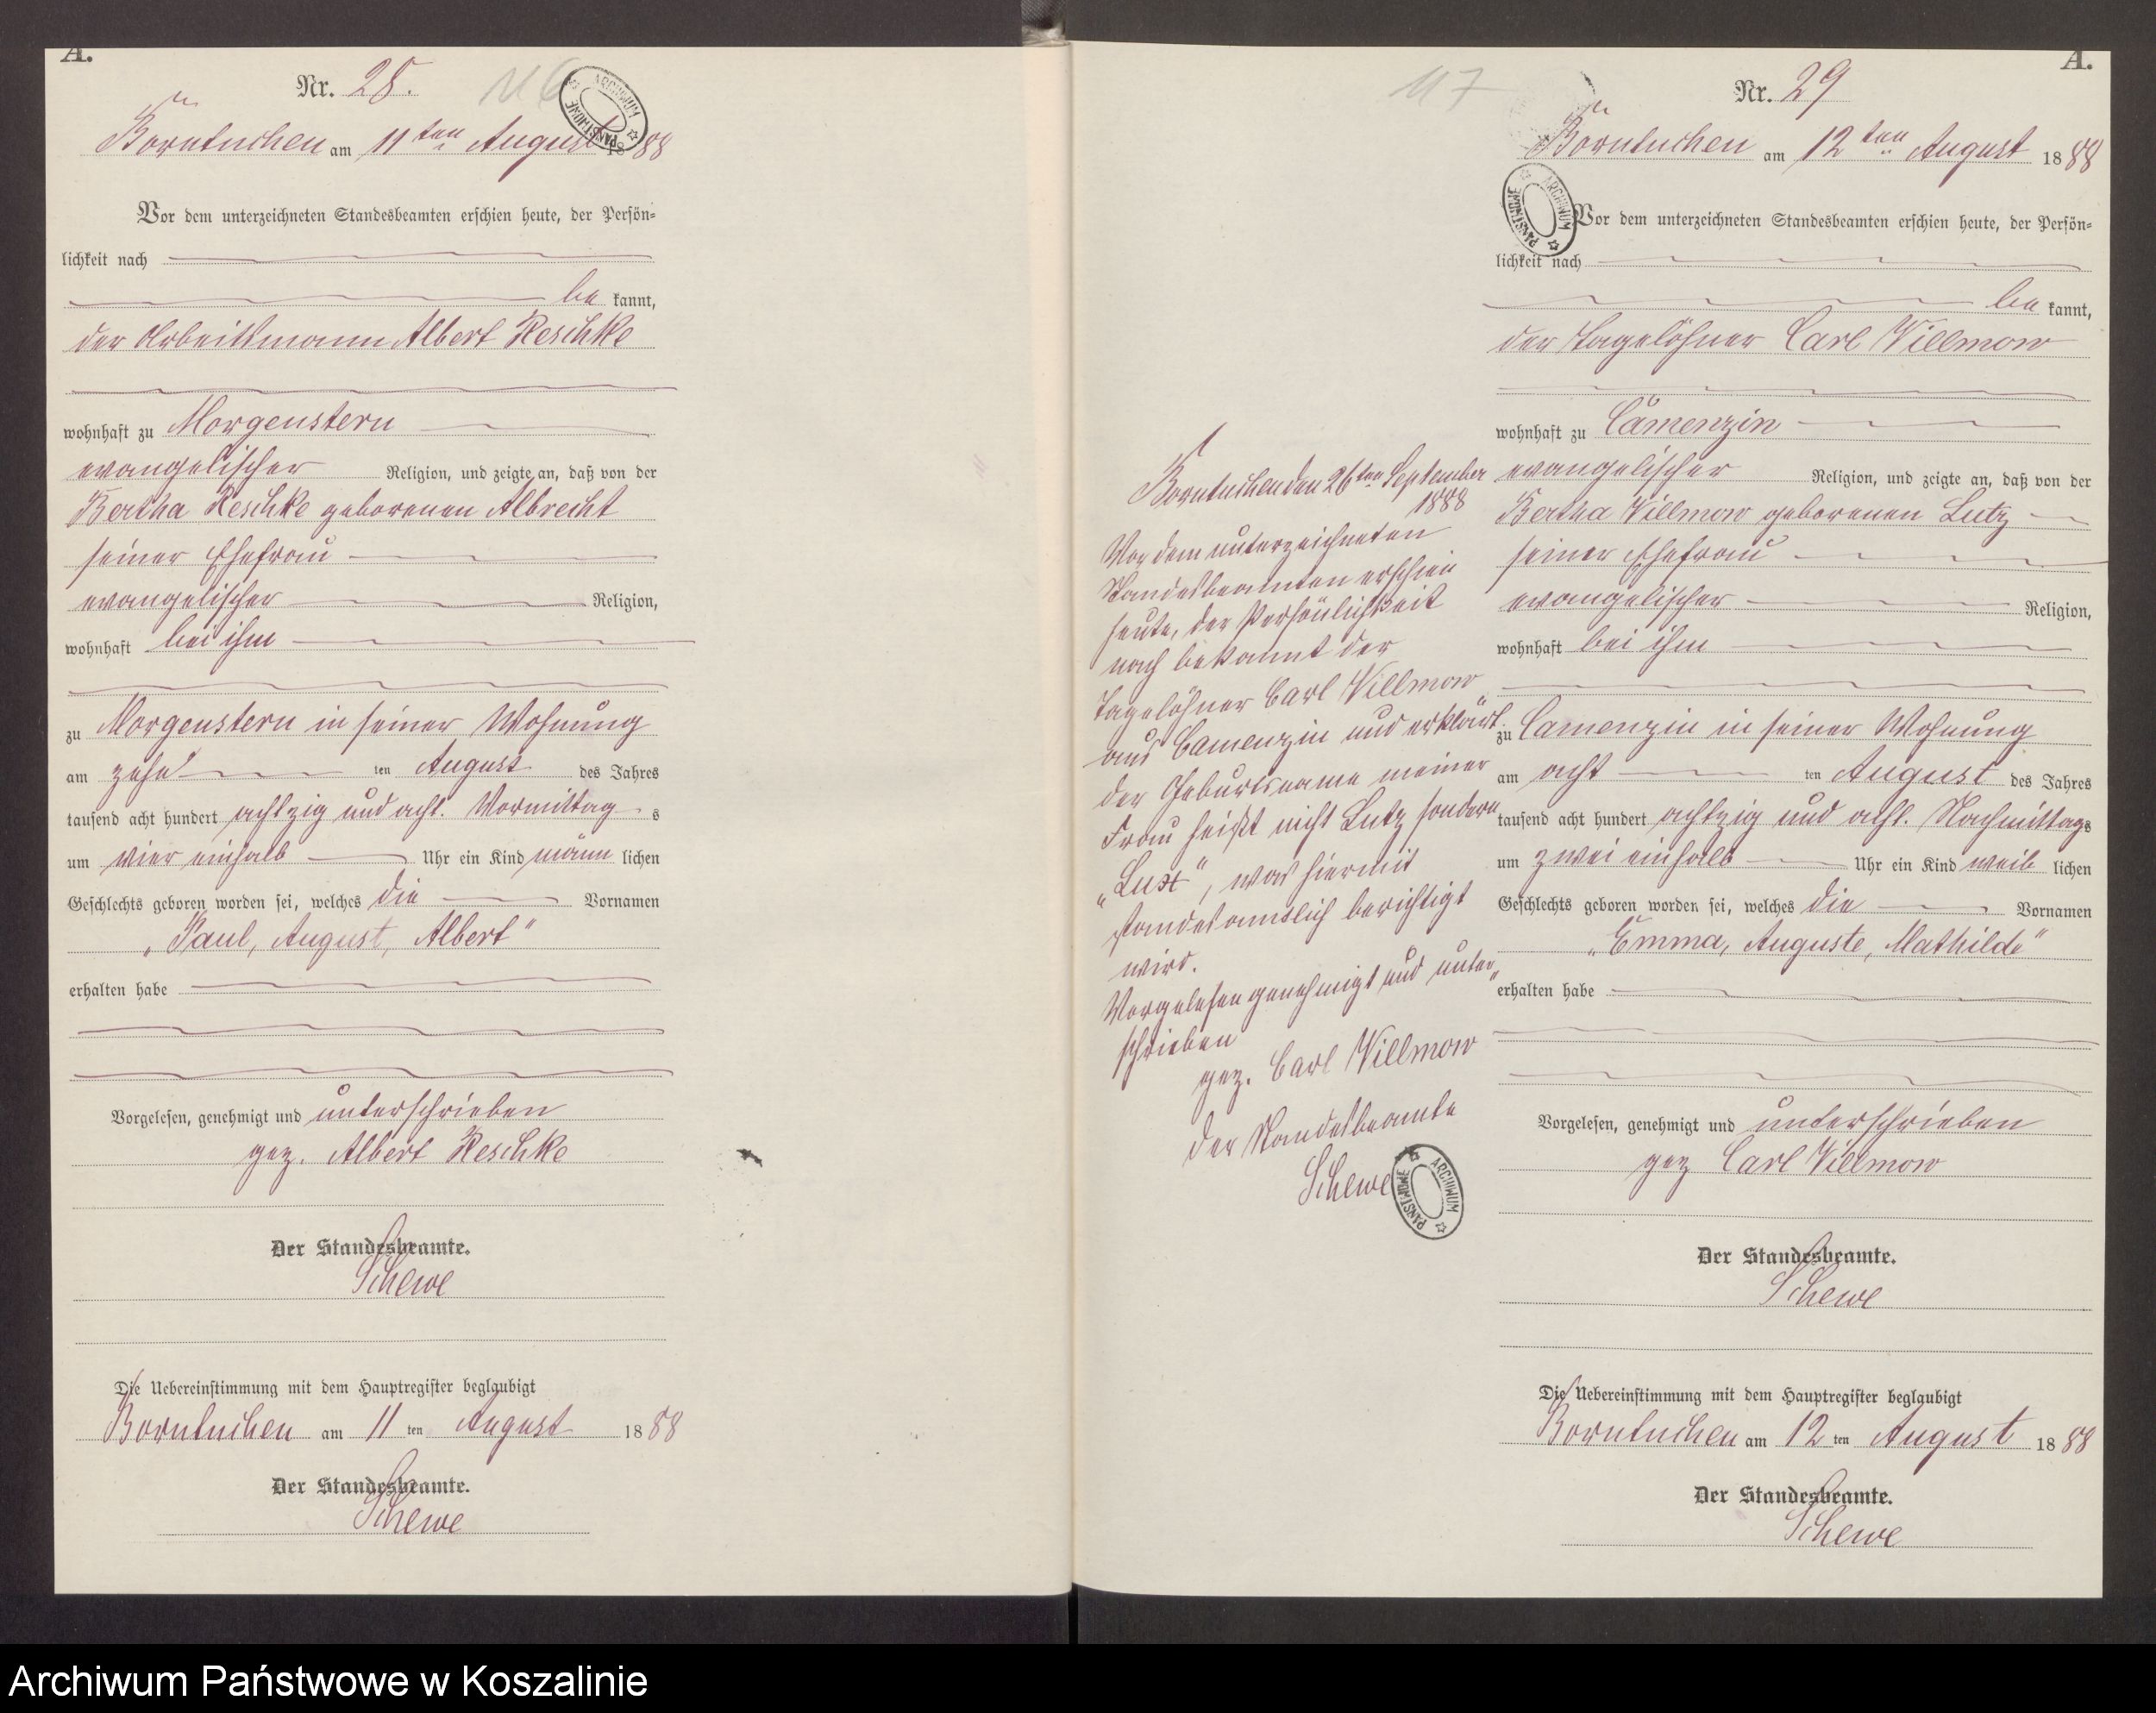 A.
Nr. 28.
116
ARCHIWUM PAŃSTWOWE
Borntuchen am 11ten August 1888
Vor dem unterzeichneten Standesbeamten erschien heute, der Persön-
lichkeit nach
be kannt,
der Arbeitsmann Albert Reschke
wohnhaft zu Morgenstern
evangelischer Religion, und zeigte an, daß von der
Bertha Reschke geborenen Albrecht
seiner Ehefrau
evangelischer Religion,
wohnhaft bei ihm
zu Morgenstern in seiner Wohnung
am zehn ten August des Jahres
tausend acht hundert achtzig und acht. Vormittag s
um vier einhalb Uhr ein Kind männ lichen
Geschlechts geboren worden sei, welches die Vornamen
„Paul, August, Albert"
erhalten habe
Vorgelesen, genehmigt und unterschrieben
gez. Albert Reschke
Der Standesbeamte.
Schewe
Die Uebereinstimmung mit dem Hauptregister beglaubigt
Borntuchen am 11 ten August 1888
Der Standesbeamte.
Schewe
117
Borntuchen den 26ten September
1888
Vor dem unterzeichneten
Standesbeamten erschien
heute, der Persönlichkeit
nach bekannt der
Tagelöhner Carl Villmow
aus Camenzin und erklärt:
der Geburtsname meiner
Frau heißt nicht Lutz sondern
„Lust", was hiermit
standesamtlich berichtigt
wird.
Vorgelesen genehmigt und unter„
schrieben
gez. Carl Villmow
Der Standesbeamte
Schewe
ARCHIWUM PAŃSTWOWE
A.
Nr. 29
Borntuchen am 12ten August 1888
ARCHIWUM PAŃSTWOWE
Vor dem unterzeichneten Standesbeamten erschien heute, der Persön-
lichkeit nach
be kannt,
der Tagelöhner Carl Villmow
wohnhaft zu Camenzin
evangelischer Religion, und zeigte an, daß von der
Bertha Villmow geborenen Lutz
seiner Ehefrau
evangelischer Religion,
wohnhaft bei ihm
zu Camenzin in seiner Wohnung
am acht ten August des Jahres
tausend acht hundert achtzig und acht. Nachmittags
um zwei einhalb Uhr ein Kind weib lichen
Geschlechts geboren worden sei, welches die Vornamen
„Emma, Auguste, Mathilde"
erhalten habe
Vorgelesen, genehmigt und unterschrieben
gez Carl Villmow
Der Standesbeamte.
Schewe
Die Uebereinstimmung mit dem Hauptregister beglaubigt
Borntuchen am 12 ten August 1888
Der Standesbeamte.
Schewe
Archiwum Państwowe w Koszalinie